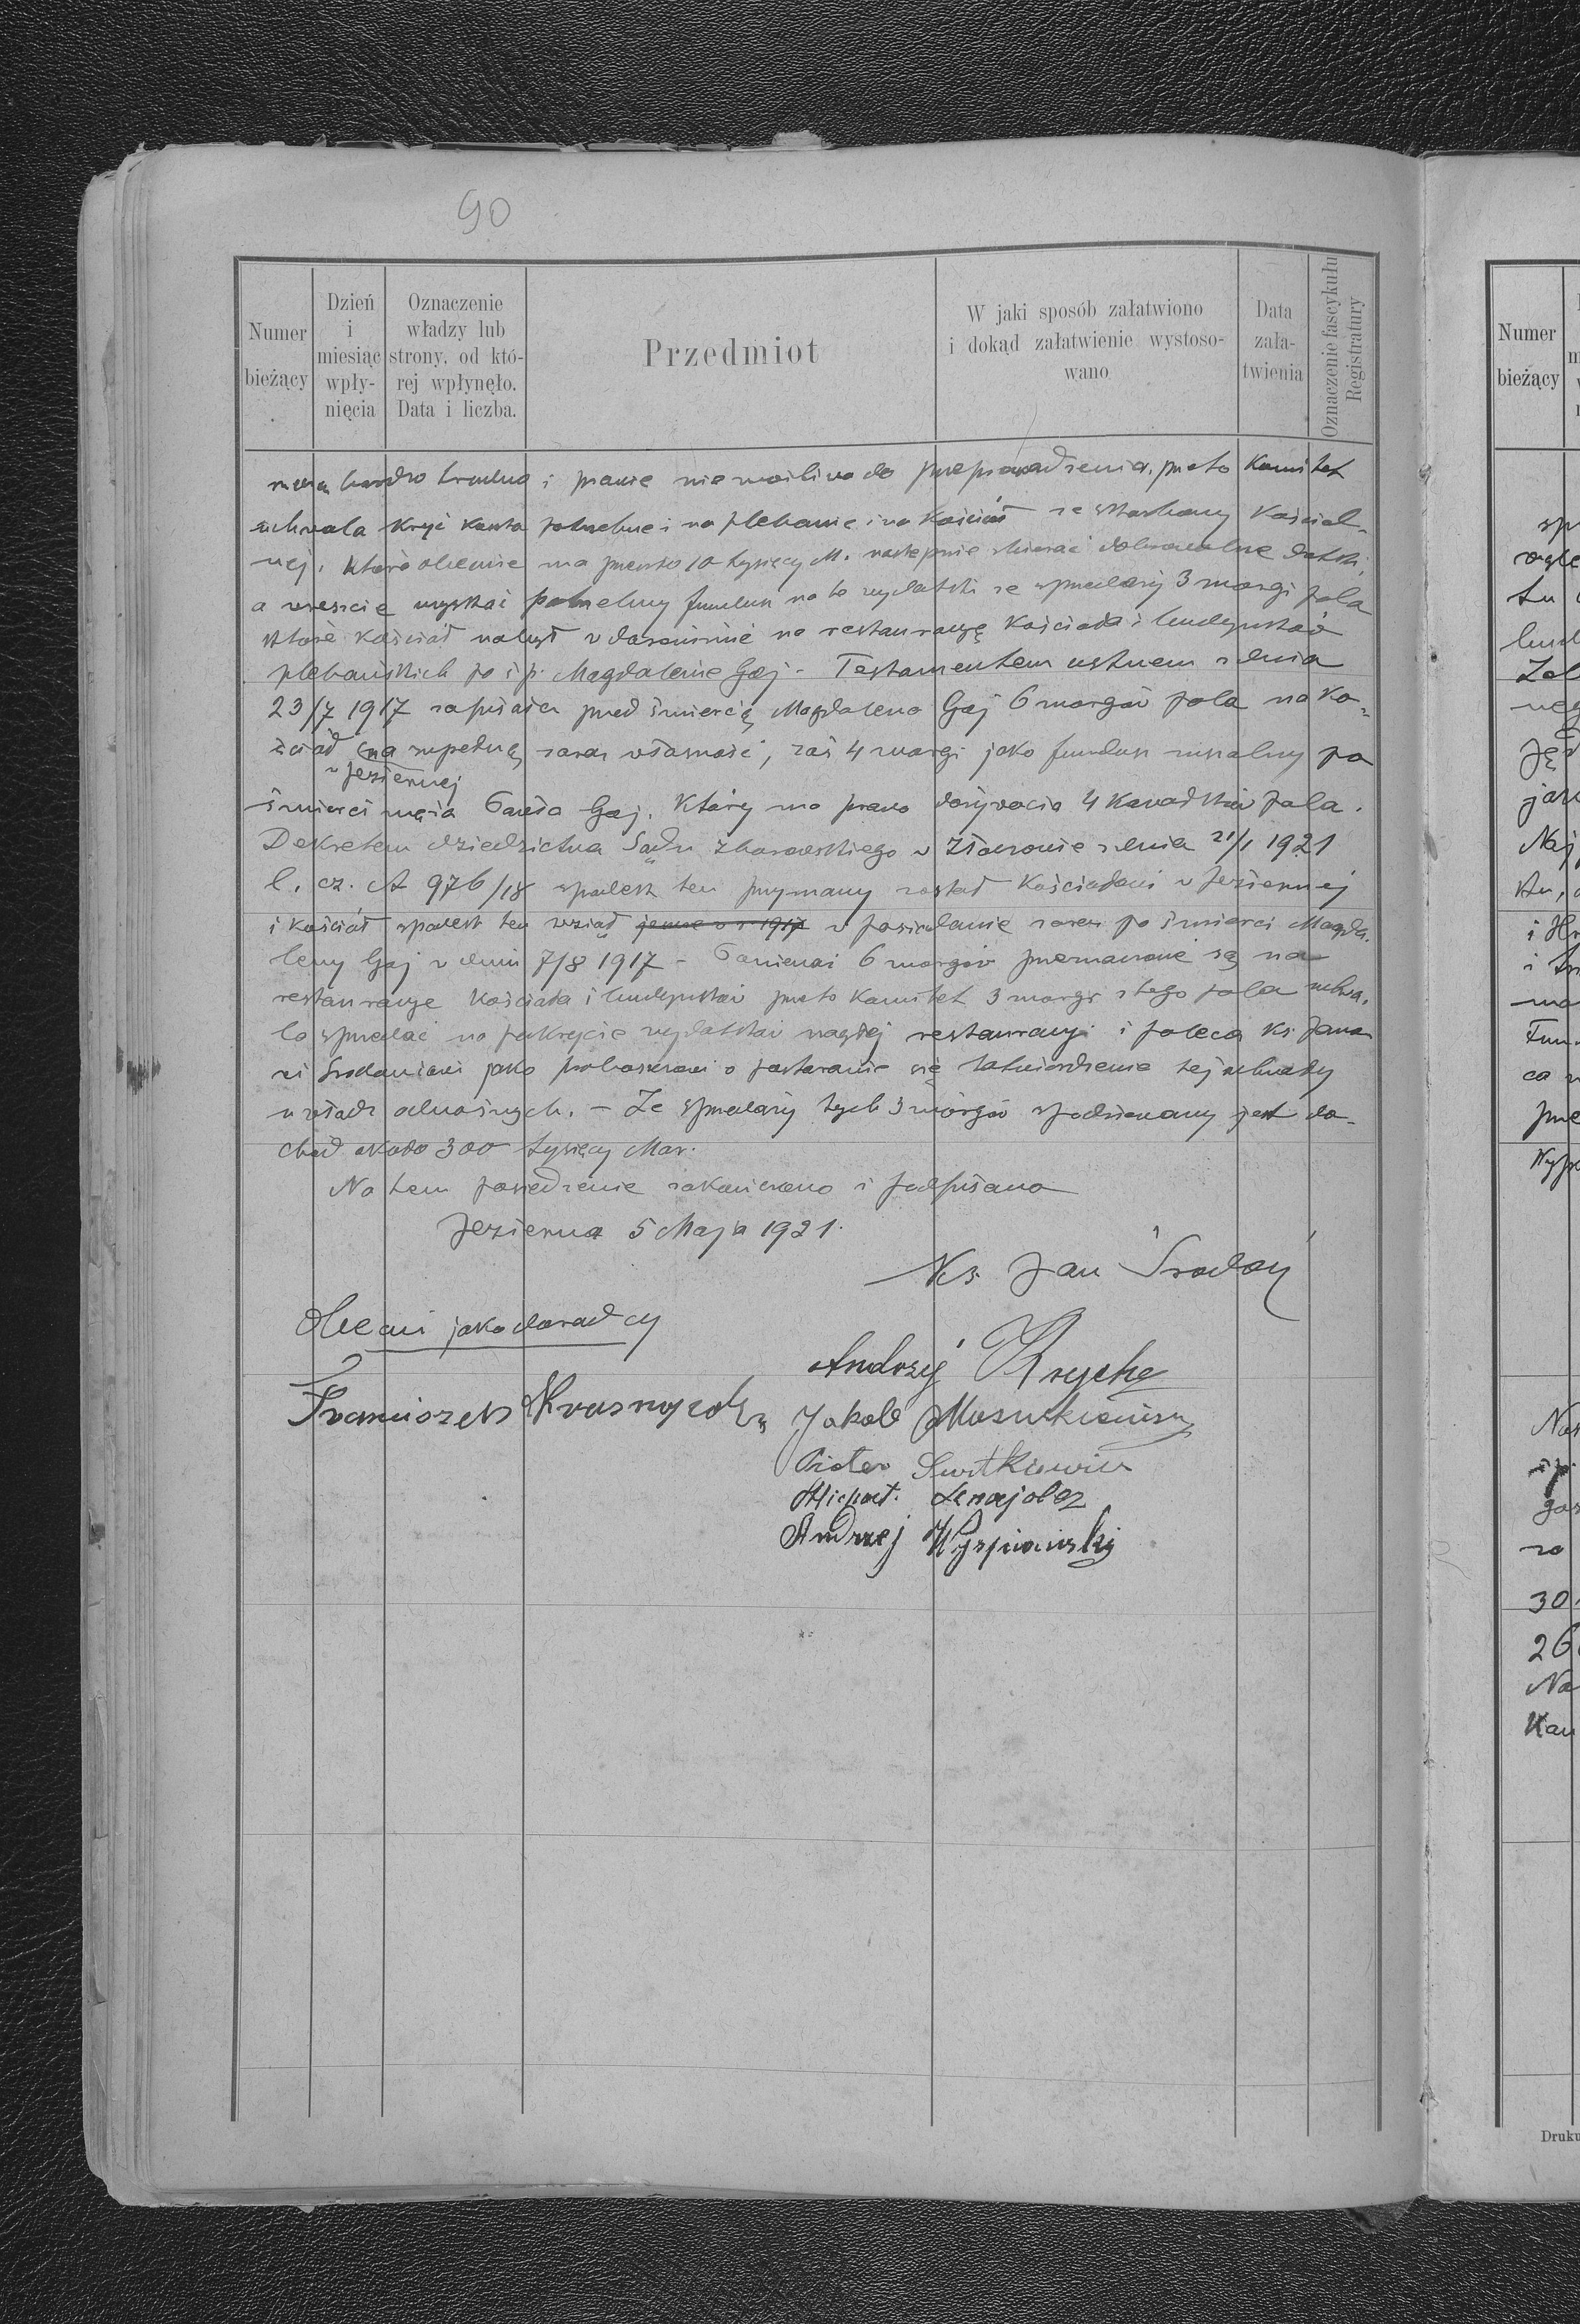 90
Numer bieżący
Dzień i miesiąc wpły- nięcia
Oznaczenie władzy lub strony, od któ- rej wpłynęło. Data i liczba.
Przedmiot
W jaki sposób załatwiono i dokąd załatwienie wystoso- wano
Data zała- twienia
Oznaczenie fascykułu Registratury
bardzo trudna i prawie niemożliwa do przeprowadzenia, przeto Komitet
uchwala kryć koszta potrzebne i na plebanię i na Kościół ze skarbony Kościel-
nej, która obecnie ma przeszło 10 tysięcy M. następnie zbierać dobrowolne datki,
a wreszcie uzyskać potrzebny fundusz na te wydatki ze sprzedaży 3 morgi pola
które kościół nabył w darowiźnie na restauracyę Kościoła i budynków
plebańskich po ś.p. Magdalenie Gaj - Testamentem ustnem z dnia
23/7 1917 zapisała przed śmiercią Magdalena Gaj 6 morgów pola na Ko-
ściół na zupełną zaraz własność, zaś 4 morgi jako fundusz mszalny po
w Jeziernej
śmierci męża Pawła Gaj, który ma prawo dożywocia 4 kawałków pola.
Dekretem dziedzictwa Sądu Zborowskiego w Złoczowie z dnia 21/1 1921
l. cz. A 976/18 spadek ten przyznany został Kościołowi w Jeziernej
i kościół spadek ten wziął jeszcze w r. 1917 w posiadanie zaraz po śmierci Magda-
leny Gaj w dniu 7/8 1917 - Ponieważ 6 morgów przeznaczone są na
restauracye Kościoła i budynków przeto Komitet 3 morgi z tego pola uchwa-
la sprzedać na pokrycie wydatków nagłej restauracyi i poleca Ks. Jano-
wi Środoniowi jako proboszczowi o postaranie się zatwierdzenie tej uchwały
u władz odnośnych. - Ze sprzedaży tych 3 morgów spodziewany jest do-
chód około 300 tysięcy Mar.
Na tem posiedzenie zakończono i podpisano
Jezierna 5 Maja 1921.
Ks Jan Środoń
Obecni jako doradcy
Andrzej Krycha
Franciszek
Jakób
Piotr
Michał
Andrzej Wyspiański
Numer bieżący